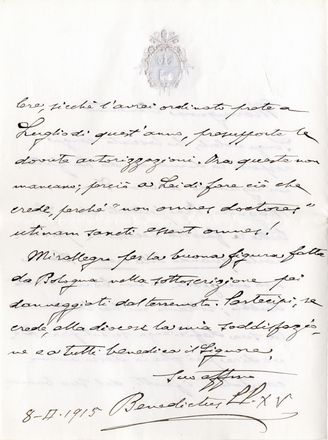 bre, sicché l'avrai ordinato prete a
Luglio di quest'anno, presupposte le
dovute autorizzazioni. Ora, queste non
mancano; perciò a Lei di fare ciò che
crede, perché "non omnes doctores"
utinam sancti essent omnes!
Mi rallegro per la buona figura fatta
da Bologna nella sottoscrizione pei
danneggiati dal terremoto. Partecipi, se
crede, alla diocesi la mia soddisfazio-
ne e a tutti benedica il Signore.
Suo affmo
8-II-1915 Benedictus PP. XV